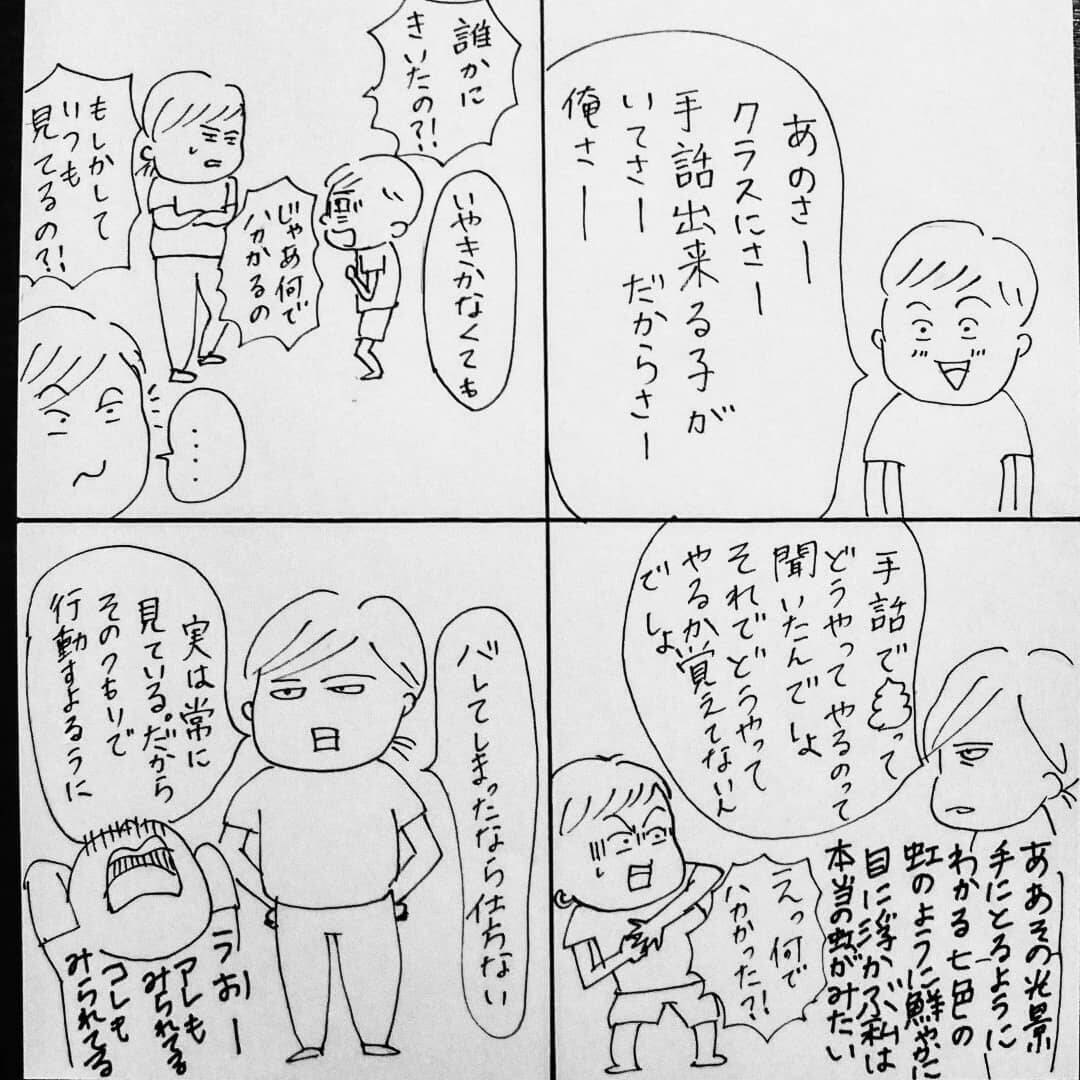 あのさー
クラスにさー
手話出来る子が
いてさー だからさー
俺さー
手話で って
どうやってやるのって
聞いたんでしょ
それでどうやって
やるか覚えてないん
でしょ
ああその光景
手にとるように
わかる七色の
虹のように鮮やかに
目に浮かぶ私は
本当の虹がみたい
えっ何で
わかった?!
誰かに
きいたの?!
いやきかなくても
じゃあ何で
わかるの
もしかして
いつも
見てるの?!
‥‥
バレてしまったなら仕方ない
実は常に
見ている。だから
そのつもりで
行動すよるうに
うおー
アレも
みられてる
コレも
みられてる